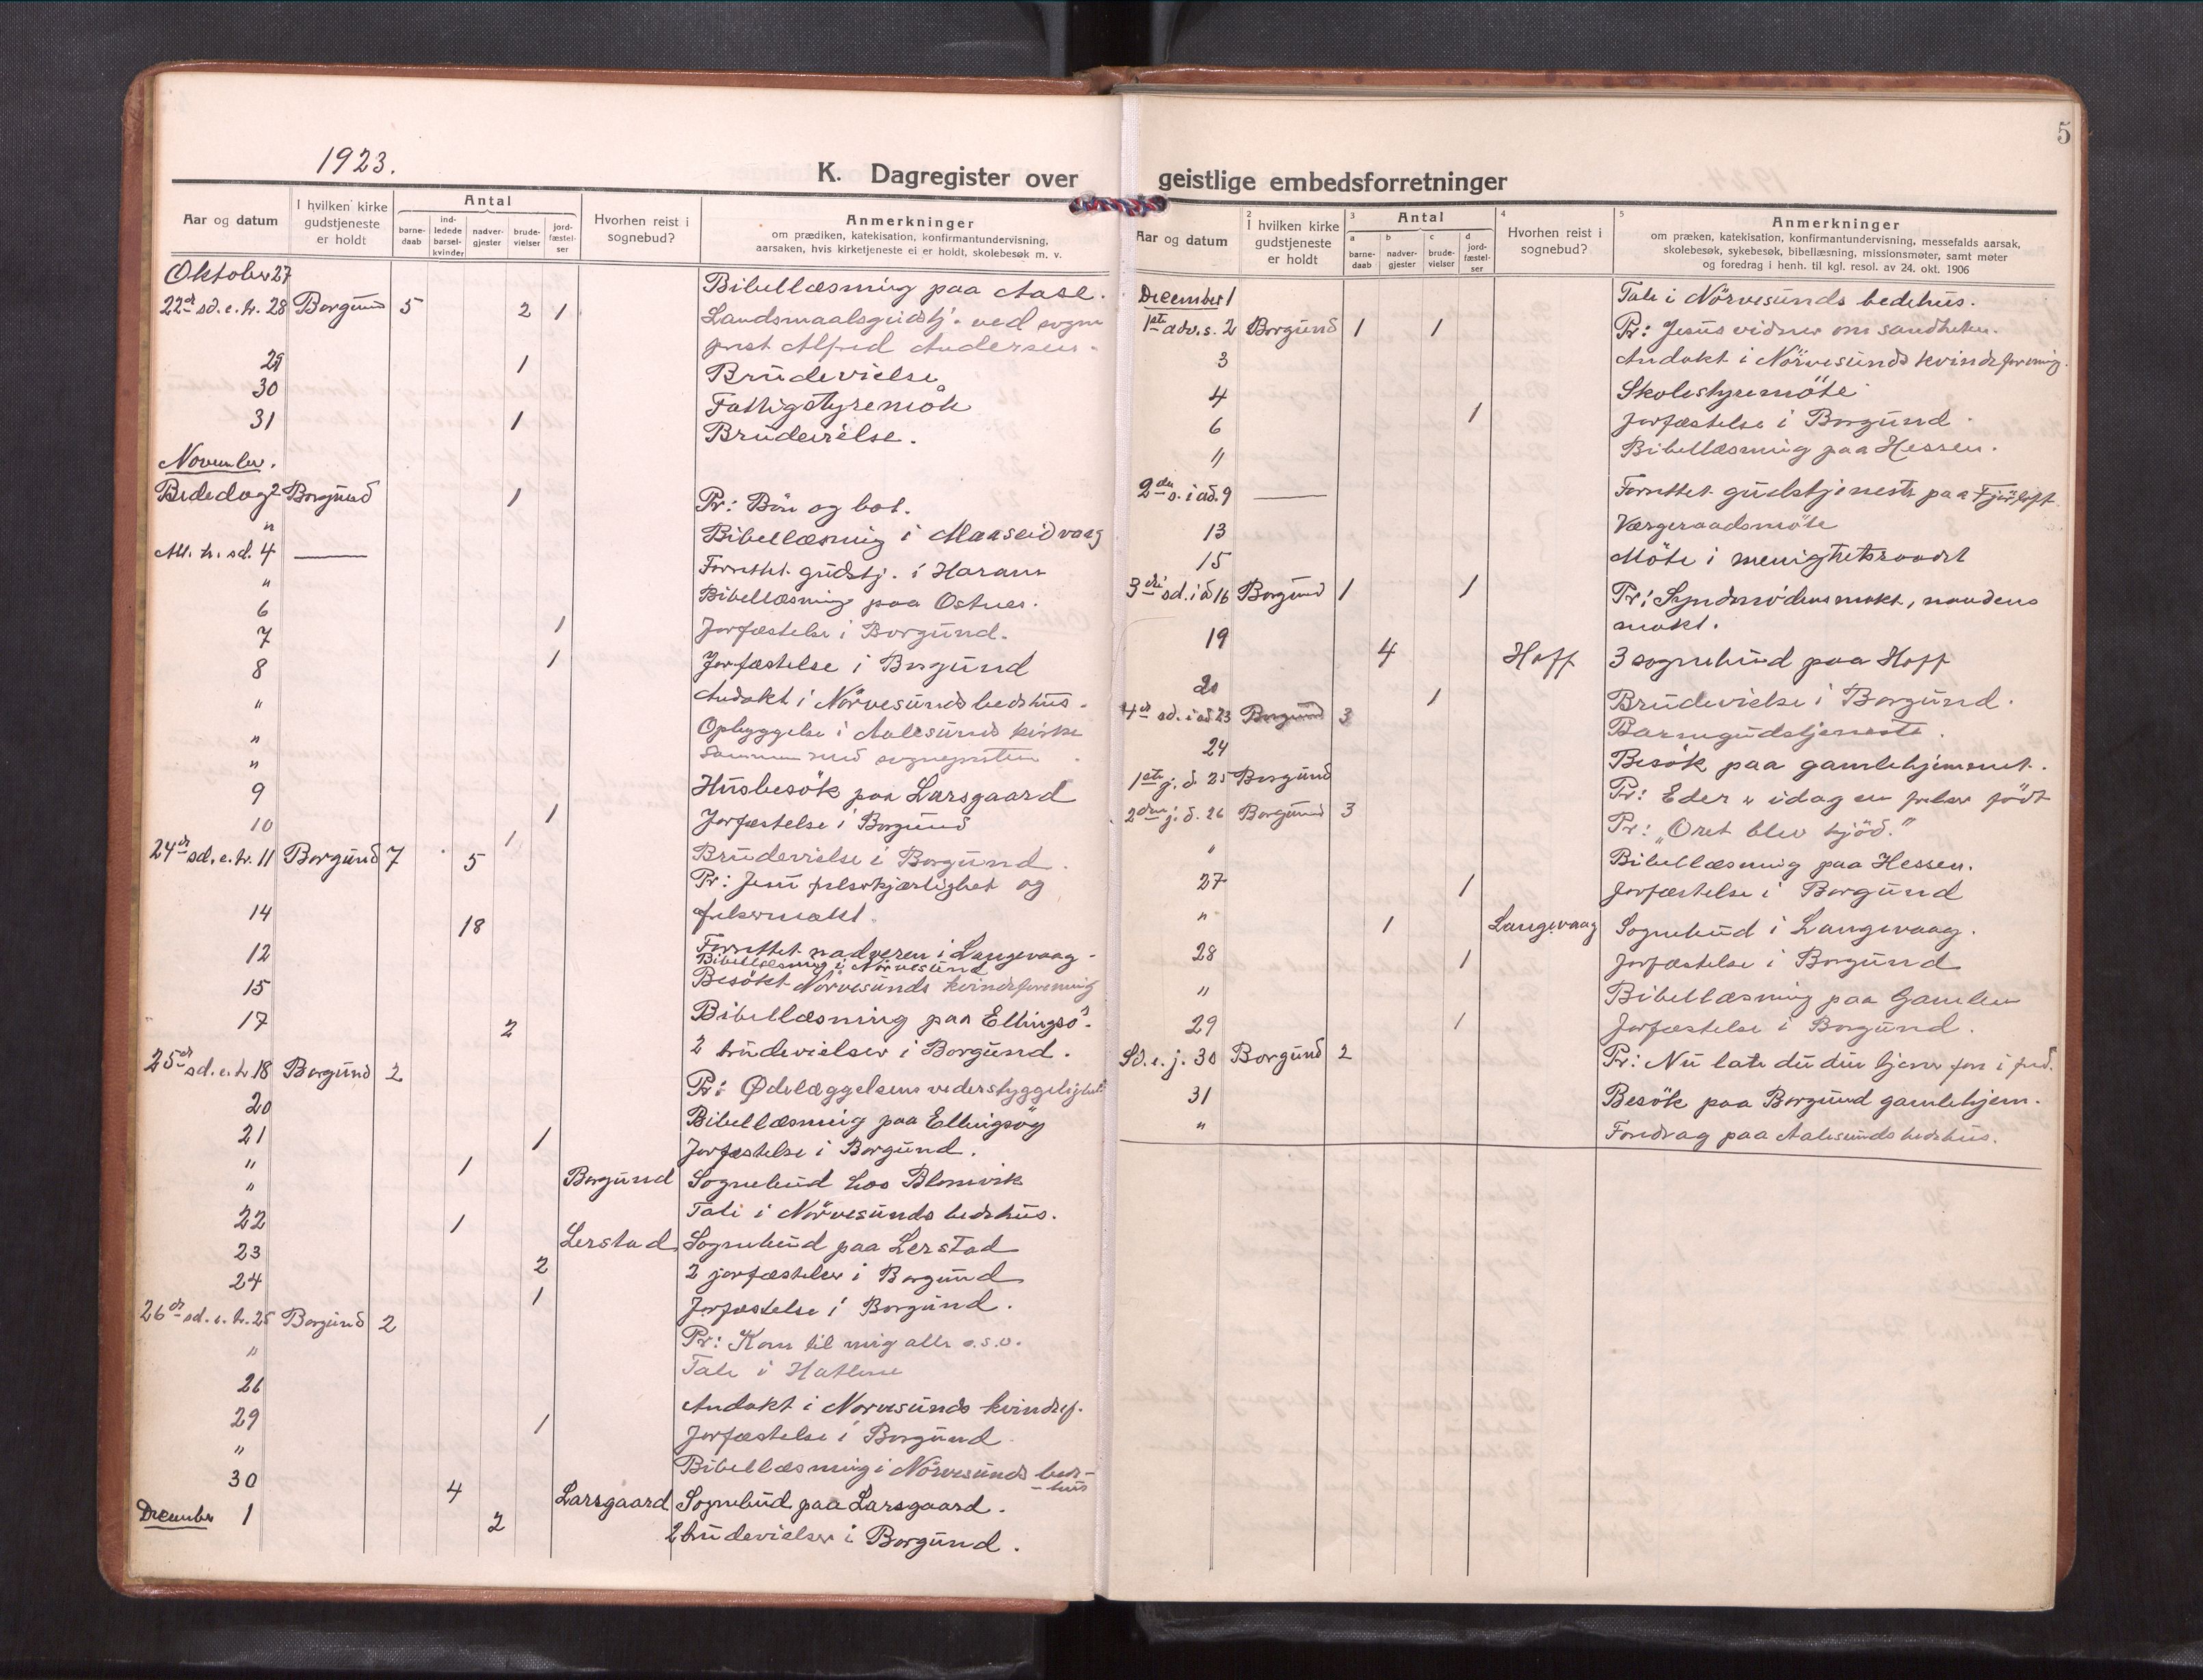 1923.
K. Dagregister over
Aar og datum
I hvilken kirke gudstjeneste er holdt
Antal
barne-daab
ind-ledede barsel-kvinder
nadver-gjester
brude-vielser
jord-fæstel-ser
Hvorhen reist i sognebud?
Anmerkninger
om prædiken, katekisation, konfirmantundervisning,
aarsaken, hvis kirketjeneste ei er holdt, skolebesøk m. v.
Oktober 27 Bibellæsning paa Aase.
22de sd. e. tr. 28 Borgund 5 2 1 Landsmaalsgudstj. ved sogne
prest Alfred Andersen.
29 1 Brudevielse
30 Fattigstyremöte
31 1 Brudevielse.
November.
Bededag 2 Borgund 1 Pr: Bön og bot.
" Bibellæsning i Maaseidvaag
All. h. sd. 4 — Forrettet gudstj. i Haram
" Bibellæsning paa Ostnes.
6 1 Jorfæstelse i Borgund.
7 1 Jorfæstelse i Borgund
8 Andakt i Nörvesunds bedehus.
" Opbyggelse i Aalesunds kirke
" sammen med sognepresten
" Husbesök paa Larsgaard
9 1 Jorfæstelse i Borgund
10 1 Brudevielse i Borgund.
24de sd. e. tr. 11 Borgund 7 5 Pr: Jesu frelserkjærlighet og
frelsermakt.
14 18 Forrettet nadveren i Langevaag.
Bibellæsning i Nörvesund
12 Besökt Nörvesunds kvindeforening
15 Bibellæsning paa Ellingsö.
17 2 2 brudevielser i Borgund.
25de sd. e. tr. 18 Borgund 2 Pr: Ødelæggelsens vederstyggelighet
20 Bibellæsning paa Ellingsöy
21 1 Jorfæstelse i Borgund.
" 1 Borgund Sognebud hos Blomvik
" Tale i Nörvesunds bedehus.
22 1 Lerstad Sognebud paa Lerstad
23 2 2 jorfæstelser i Borgund
24 1 Jorfæstelse i Borgund.
26de sd. e. tr. 25 Borgund 2 Pr: Kom til mig alle o.s.v.
" Tale i Hatlene
26 Andakt i Nörvesunds kvindef.
29 1 Jorfæstelse i Borgund
" Bibellæsning i Nörvesunds bede-
-hus
30 4 Larsgaard Sognebud paa Larsgaard.
December 1 2 2 brudevielser i Borgund.
5
geistlige embedsforretninger
Aar og datum
2
I hvilken kirke gudstjeneste er holdt
3
Antal
a
barne-daab
b
nadver-gjester
c
brude-vielser
d
jord-fæstel-ser
4
Hvorhen reist i sognebud?
5
Anmerkninger
om præken, katekisation, konfirmantundervisning, messefalds aarsak,
skolebesøk, sykebesøk, bibellæsning, missionsmøter, samt møter
og foredrag i henh. til kgl. resol. av 24. okt. 1906
December 1 Tale i Nörvesunds bedehus.
1ste adv. s. 2 Borgund 1 1 Pr: Jesus vidner om sandheten.
3 Andakt i Nörvesunds kvindeforening.
4 Skolestyremöte
6 1 Jorfæstelse i Borgund.
" Bibellæsning paa Hessen.
2den s. i ad. 9 — Forrettet gudstjeneste paa Fjörtoft
13 Værgeraadsmöte
15 Möte i menighetsraadet
3die sd. i ad 16 Borgund 1 1 Pr: Syndenödens makt, naadens
makt.
19 4 Hoff 3 sognebud paa Hoff
20 1 Brudevielse i Borgund.
4de sd. i ad 23 Borgund 3 Barnegudstjeneste.
24 Besök paa gamlehjemmet.
1ste j. d. 25 Borgund Pr: Eder er idag en frelser födt
2den j. d. 26 Borgund 3 Pr: „Ordet blev kjöd."
" Bibellæsning paa Hessen.
27 1 Jorfæstelse i Borgund
" 1 Langevaag Sognebud i Langevaag.
28 1 Jorfæstelse i Borgund
" Bibellæsning paa Gamlem
29 1 Jorfæstelse i Borgund.
Sd. e. j. 30 Borgund 2 Pr: Nu later du din tjener fare i fred.
31 Besök paa Borgund gamlehjem.
" Foredrag paa Aalesunds bedehus.